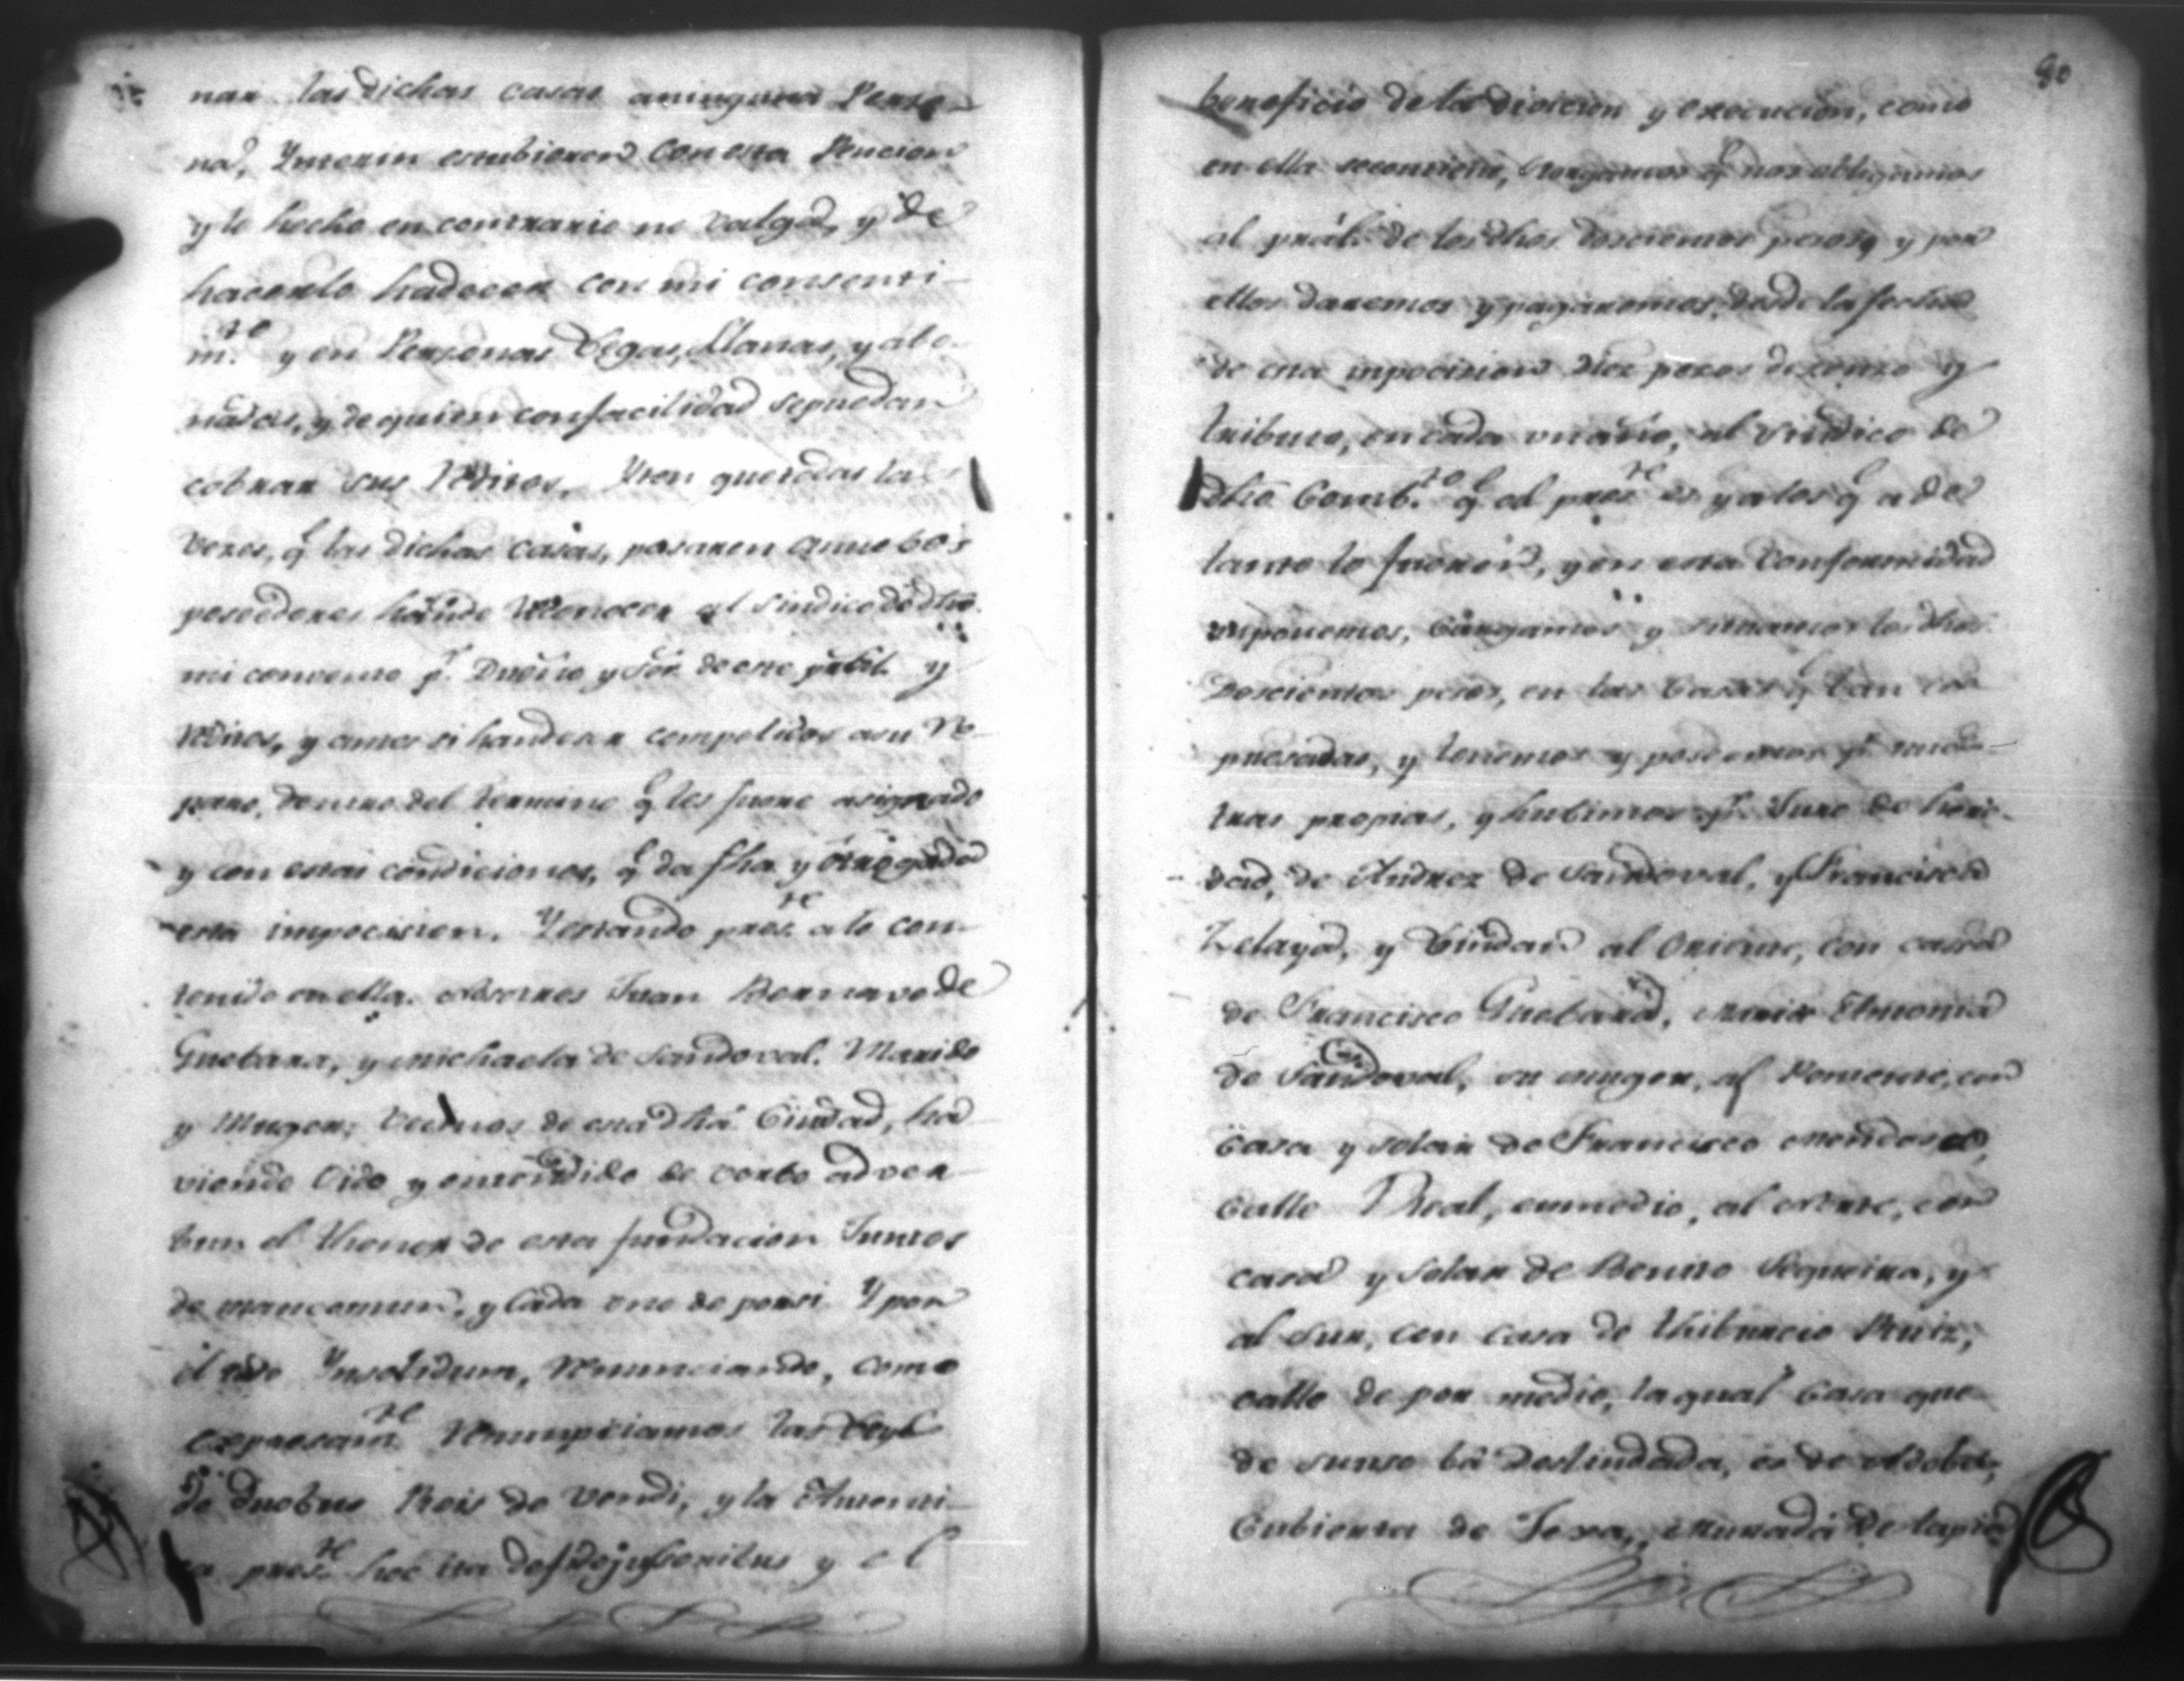 nar las dichas casas aninguna Perso-
na, Ynterin estubieren con esta Pencion
y lo hecho en contrario no valga, y de
hacerlo hadecer con mi consenti-
m.to y en Personas Legas, Llanas, y abo-
nadas, y de quien con facilidad sepuedan
cobrar sus Réditos. Yten que todas las
vezes, q las dichas casas, pasaren a nuebos
poseedores hande Reconocer al Sindico de dho
mi convento p.r Dueño y Sór de este prâl. y
Réditos, y antes si handeser compelidos asu Re-
paro, dentro del termino q les fuere asignado
y con estas condiciones, q da fha y otrogada
esta impocision. Yestando pres.te a lo con-
tenido en ella. Nosotros Juan Bernave de
Guebara, y Michaela de Sandoval. Marido
y Muger; Vecinos de esta dhâ Ciudad, ha
viendo Oido y entendido de verbo ad ver-
bun el thenor de esta fundacion Juntos
de mancomun, y Cada uno de porsi. Y por
el todo Ynsolidum, Renunciando, como
expresam.te Renunpciamos las Leyes
de duobus Reis de vendi, y la Autenti-
ca pres.te hoc ita defidejusoribus y el
80
beneficio de la divicion y execucion, como
en ella secontiene, Otorgamos q nos obligamos
al prâl. de los dhos Doscientos pesos, y por
ellos daremos y pagaremos, desde la fecha
de esta inpocision Diez pesos de zenso y
tributo, en cada un año, al Sindico de
dho Comb.to q al pres.te es y a los q ade
lante lo fueren, y en esta Conformidad
ynponemos, Cargamos y situamos los dhos
Doscientos pesos, en las Casas q ban ex-
presadas, y tenemos y poseemos p.r nues-
tras propias, y hubimos p.r Juro de here-
dad, de Andrez de Sandoval, y Francisca
Zelaya, y Lindan al Oriente, con casa
de Francisco Guebara, Maria Antonia
de Sandoval, su muger, al Poniente, con
Casa y solar de Francisco Mendosa,
Calle Real, enmedio, al Norte, con
casa y solar de Benito Sequeira, y
al Sur, con casa de Thiburcio Ruiz,
calle de por medio, la qual Casa que
de sunso bâ Deslindada, es de Adobes,
Cubierta de Texa, Murada de tapia